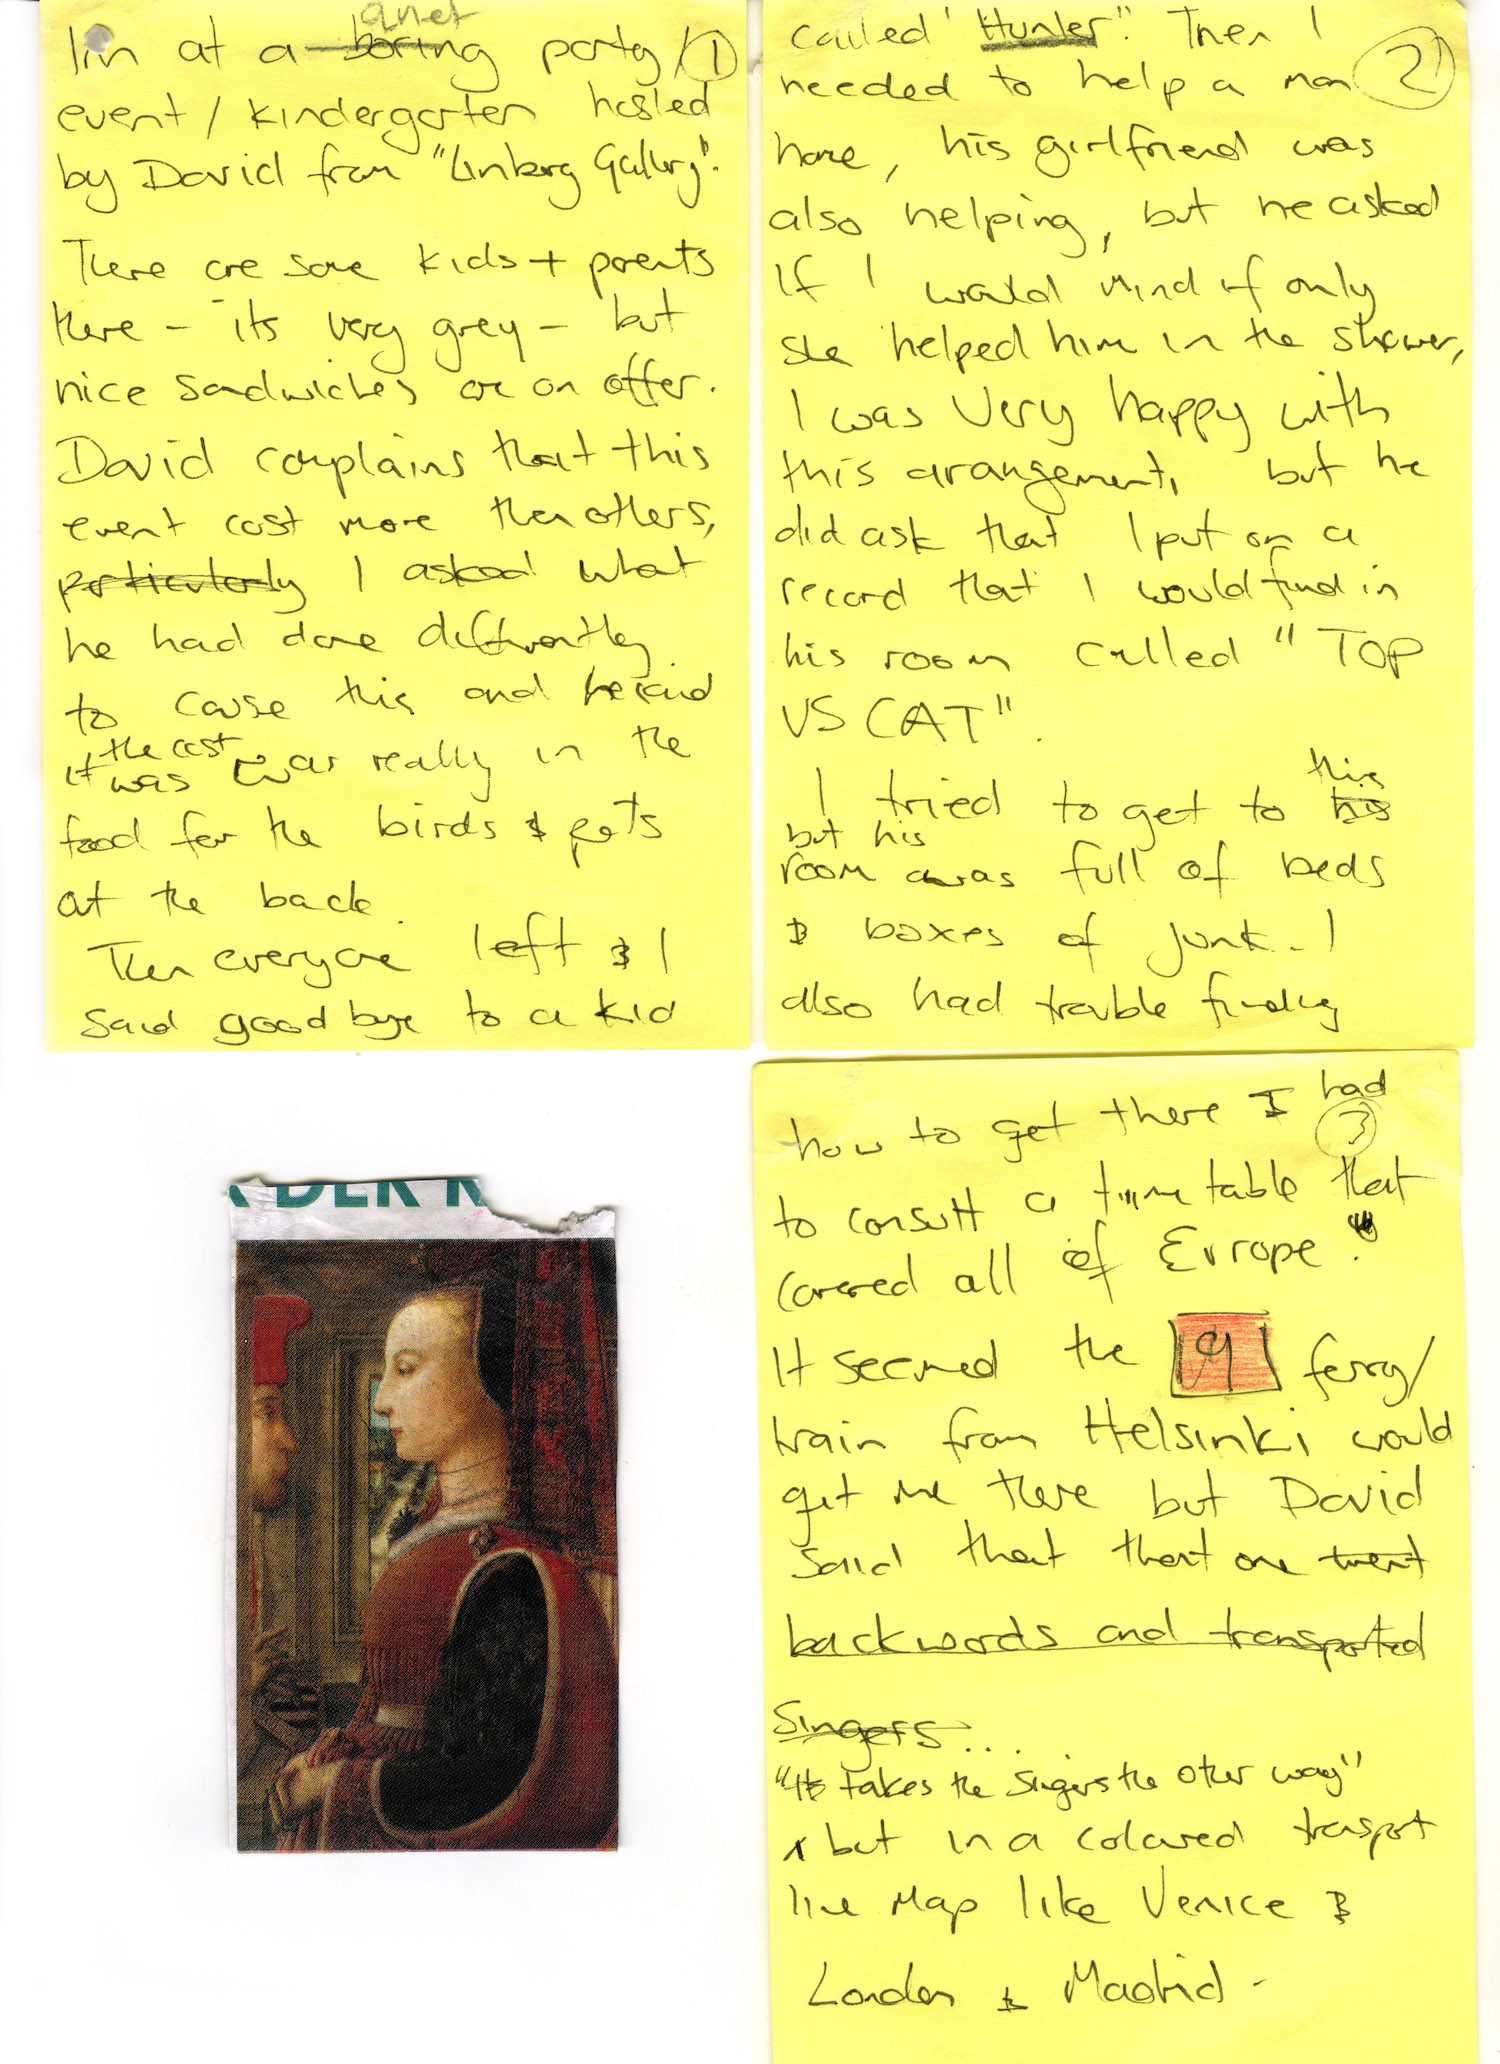 quiet
I'm at a boring party/ 1
event / kindergarten hosted
by David from "Linberg Gallery".
There are some kids + parents
there - its very grey - but
nice sandwiches are on offer.
David complains that this
event cost more then others,
particularly I asked what
he had done differently
to cause this and he said
the cost
it was was really in the
food for the birds & pets
at the back.
Then everyone left & I
said good bye to a kid
called "Hunter". Then I
needed to help a man 2
home, his girlfriend was
also helping, but he asked
If I would mind if only
she helped him in the shower,
I was very happy with
this arangement, but he
did ask that I put on a
record that I would find in
his room called "TOP
VS CAT".
I tried to get to his this
but his
room was full of beds
& boxes of junk - I
also had trouble finding
how to get there I had
3
to consult a time table that
covered all of Europe.
It seemed the 91 ferry/
train from Helsinki would
get me there but David
said that that one went
backwords and transported
Singers...
"It takes the singers the other way"
but in a coloured transport
line map like Venice &
London & Madrid -
DER